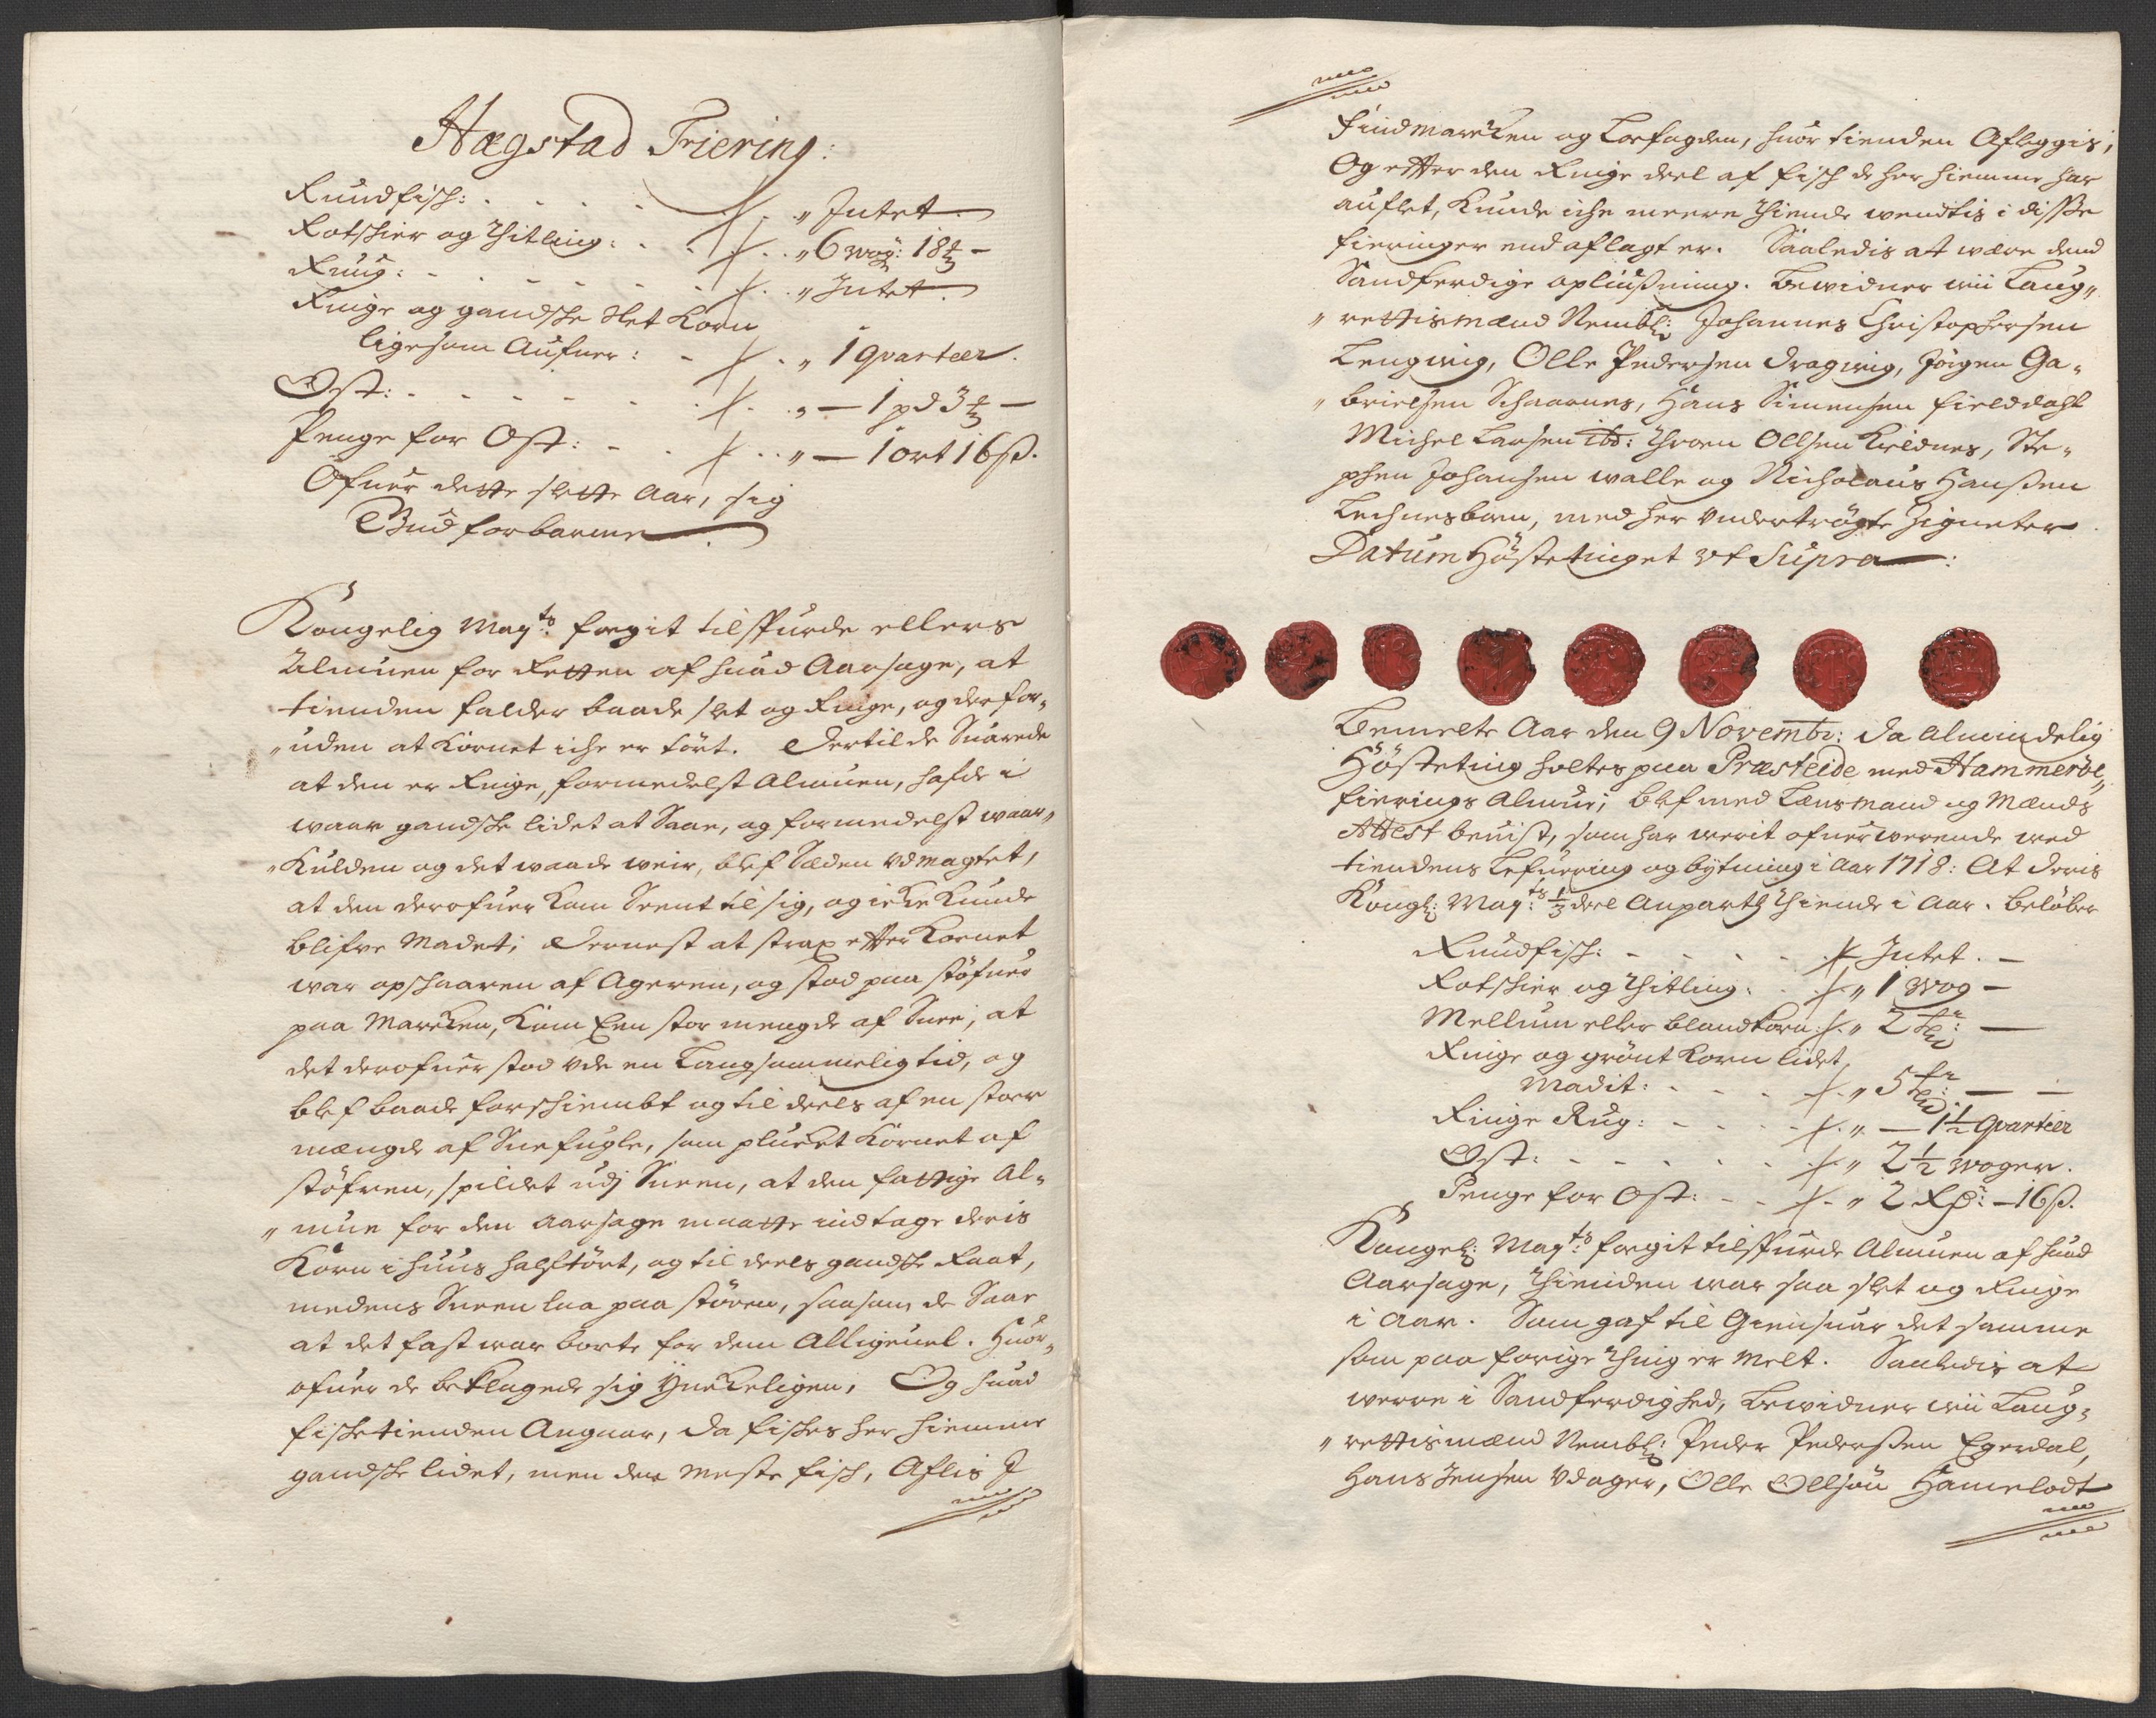 Hægstad Friering:
Rundfisch: . . . . . ⸓ . „ Intet
Rotskier og Thitling: . . ⸓ . . „ 6 wog: 18 ℔ –
Ruug: . . . . . . ⸓ . . „ Intet
Ringe og gandske slet Korn
ligesom Aufner: . ⸓ . „ 1 quarteer.
Ost: . . . . . . ⸓ . . „ — 1 pd 3 ℔ —
Penge for Ost: . . ⸓ . . „ — 1 ort 16 ß.
Ofuer dette slette Aar, sig
Gud forbarme
Kongelig Mayts: fogit tilspurde ellers
Almuen for Retten af huad Aarsage, at
tienden falder baade slet og Ringe, og der for„
„uden at Kornet iche er tört. Dertil de Suarede
at den er Ringe, formedelst Almuen, hafde i
waar gandske lidet at Saae, og formedelst waar„
„Kulden og det waade weir, blef Sæden Vdmagtet,
at den derofuer kom Seent til sig, og icke kunde
blifve Madet; Dernest at strax efter Kornet
war opschaaren af Ageren, og stod paa stöfuer
paa Marcken, Kom Een stor mengde af Snee, at
det derofuer stod Vde en Langsommelig tid, og
blef baade forschiembt og til deels af en stoer
mængde af Snefugle, som plucket Kornet af
stöfren, spildet udj Sneen, at den fattige Al„
„mue for den Aarsage maatte indtage deris
Korn i huus halftört, og til deels gandske Raat,
medens Sneen laa paa stören, saasom de Saae
at det fast war borte for dem Alligeuel. Huor„
ofuer de beklagede sig Ynckeligen; Og huad
fisketienden Angaar, da fiskes her hiemme
gandske lidet, men den meste fisch, Aflis J
Findmarcken og Lofoden, huor tienden Aflaggis;
Og efter den Ringe deel af fisch de her hiemme har
auflet, Kunde iche meere Thiende wendtis i disse
fieringer end aflagt er. Saaledis at være dend
Sandferdige opliusning. Bewidner wii Laug„
„rettismænd Nembl: Johannes Christophersen
Lengvig, Olle Pedersen Dragvig, Jörgen Ga„
„brielsen Schaanes, Hans Simensen Fielddahl
Michel Larsen ibd: Thoen Ollsen Kieldnes, Ste„
phen Johansen Walle og Nicholaus Hanssen
Lechnesboen, med her Vndertrögte Zigneter.
Datum Höstetinget Vt Supra:
Bemelte Aar den 9 Novembr: da Almindelig
Hösteting holtes paa Præsteide med Hammeröe„
fierings Almue; blef med Lensmand og Mænds
Attest beuist, som har werit ofuerwerende wed
tiendens Lefuering og bytning i Aar 1718: At deris
Kongl: Mayts: 1/3 deel Anpartt Thiende i Aar. belöber
Rundfisch: . . . . . ⸓ Intet. —
Rotskier og Thitling: . ⸓ „ 1 Wog —
Mellum eller blandkorn: ⸓ . „ 2 —
Ringe og grönt Korn lidet
Madit: . . . . ⸓ . „ 5 — —
Ringe Rug: . . . . ⸓ . „ — 1½ quarteer
Ost: . . . . . . ⸓ „ 2½ woger.
Penge for Ost: . . ⸓ . „ 2 Rdr: — 16 ß.
Kongel: Mayts: fogit tilspurde Almuen af huad
Aarsage, Thienden war saa slet og Ringe
i Aar. Som gaf til Giensuar det samme
som paa forige Thing er Melt. Saaledis at
werre i Sandferdighed, Bewidner wii Laug„
„rettismænd Nembl: Peder Pederssen Egerdal,
Hans Jensen Vdager, Olle Ollsön Hamelodt